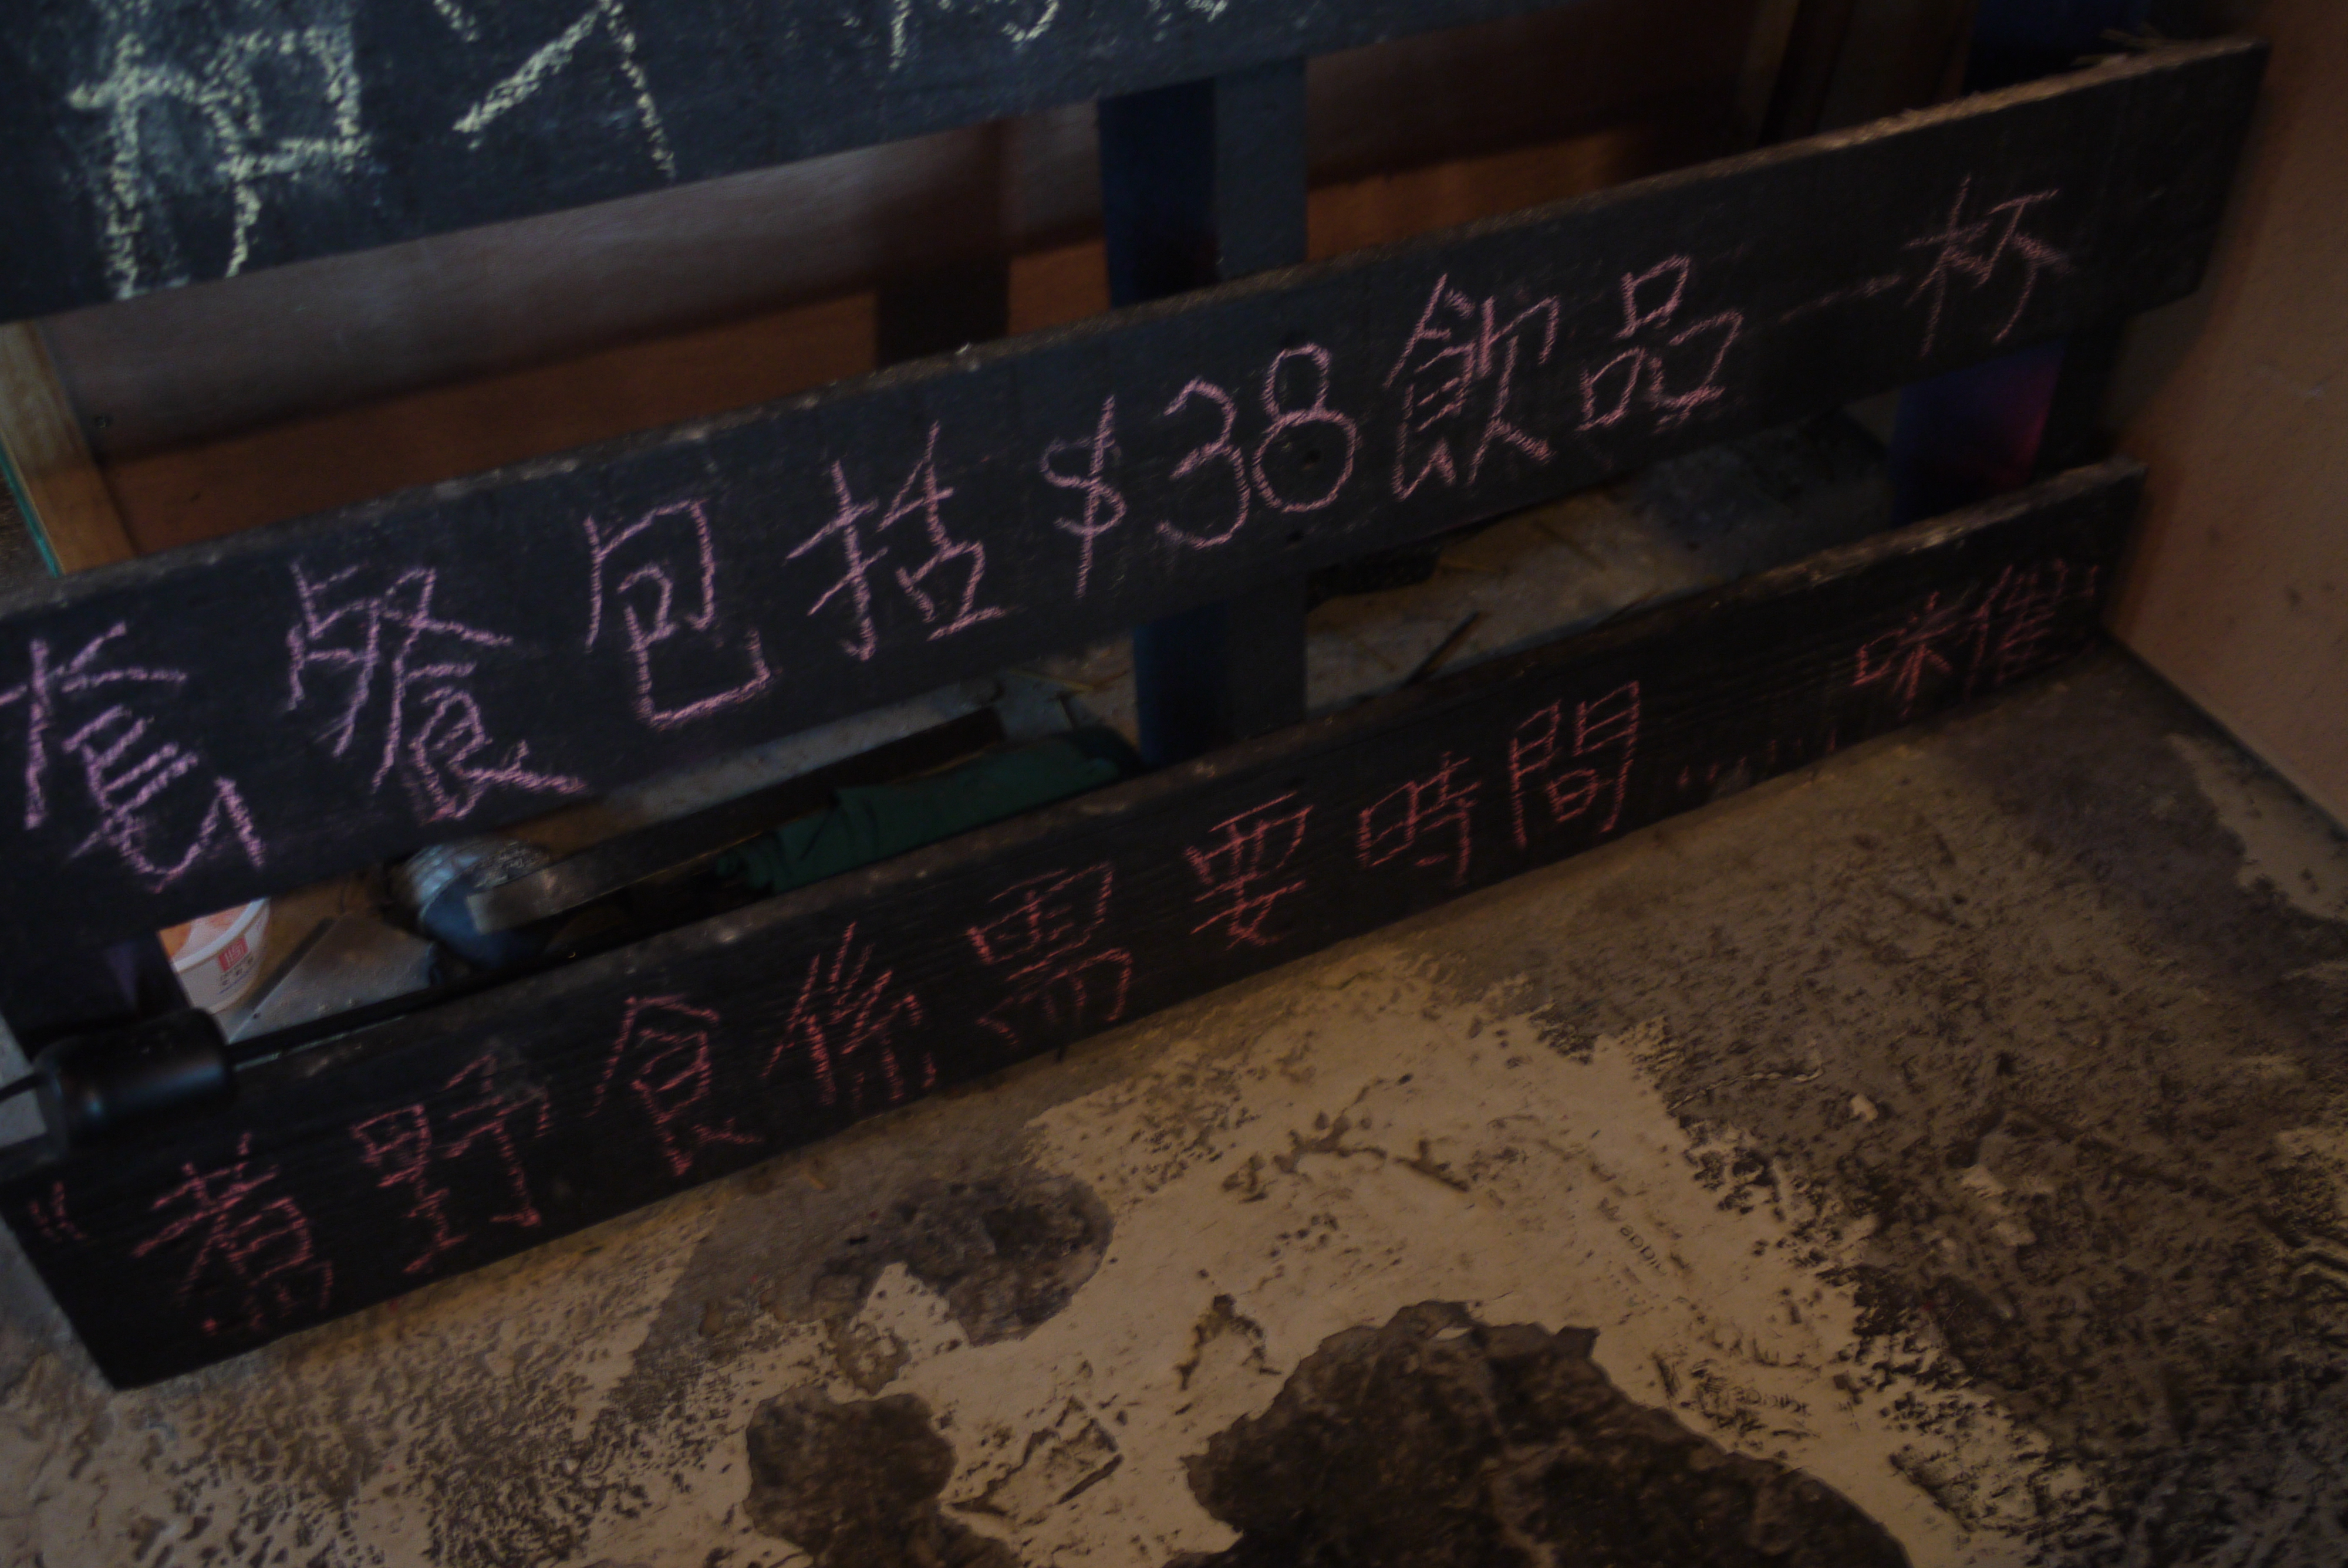 套餐包括$38飲品一杯
"煮野食係需要時間......咪催"